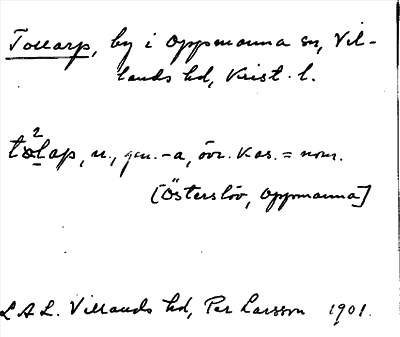 Tollarp, by i Oppmanna sn, Vil-
lands hd, Krist. l.
tålap, n., gen. -a, övr. kas. = nom.
[Österslöv, Oppmanna]
L A L. Villands hd, Per Larsson 1901.